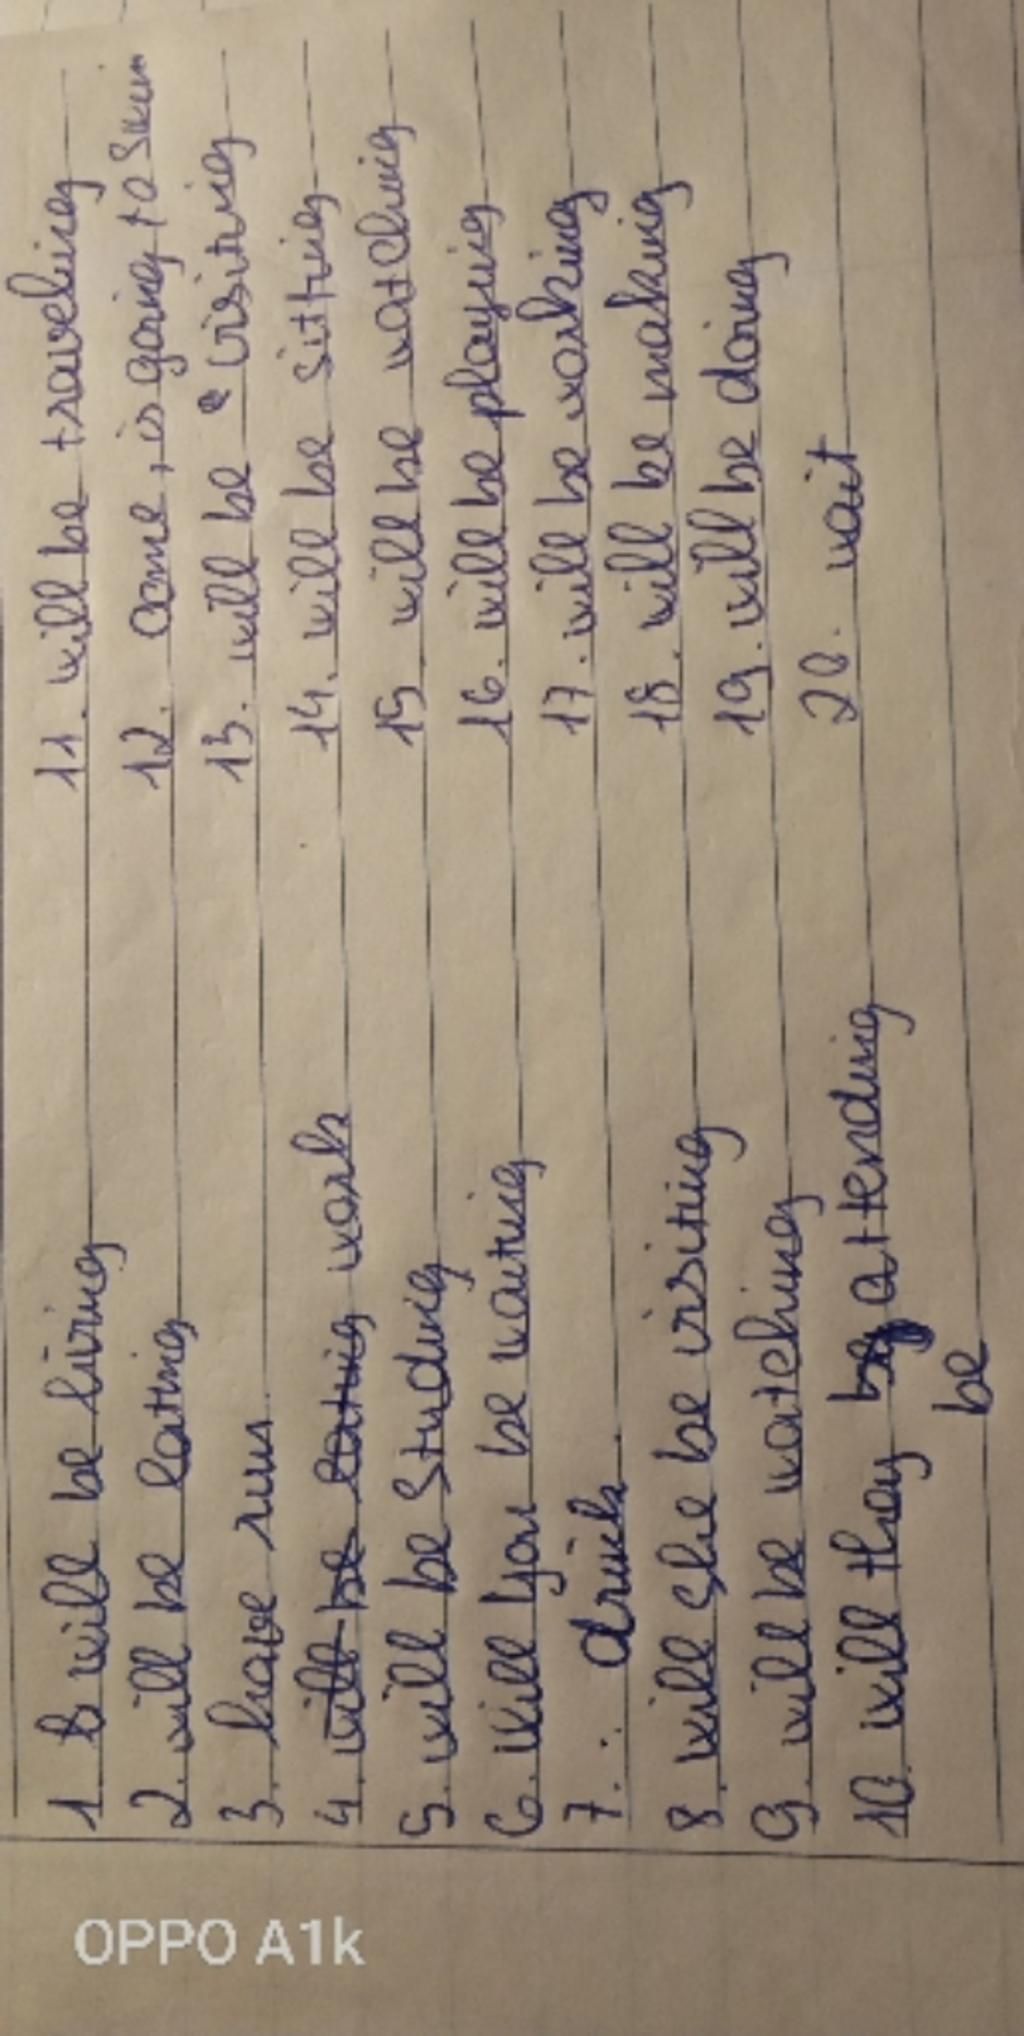 1. will be living
2. will be eating
3. have run
4. will be eating work
5. will be studing
6. will you be waiting
7. drink
8. will she be visiting
9. will be watching
10. will they be attending
be
11. will be traveling
12. come, is going to
13. will be visiting
14. will be sitting
15. will be watching
16. will be playing
17. will be working
18. will be making
19. will be doing
20. wait
OPPO A1k